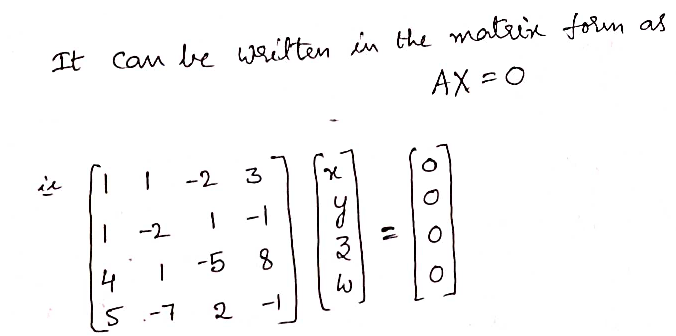 It can be written in the matrix form as
AX = 0
ie [1 1 -2 3] [x] [0]
[1 -2 1 -1] [y] = [0]
[4 1 -5 8] [z] [0]
[5 -7 2 -1] [w] [0]